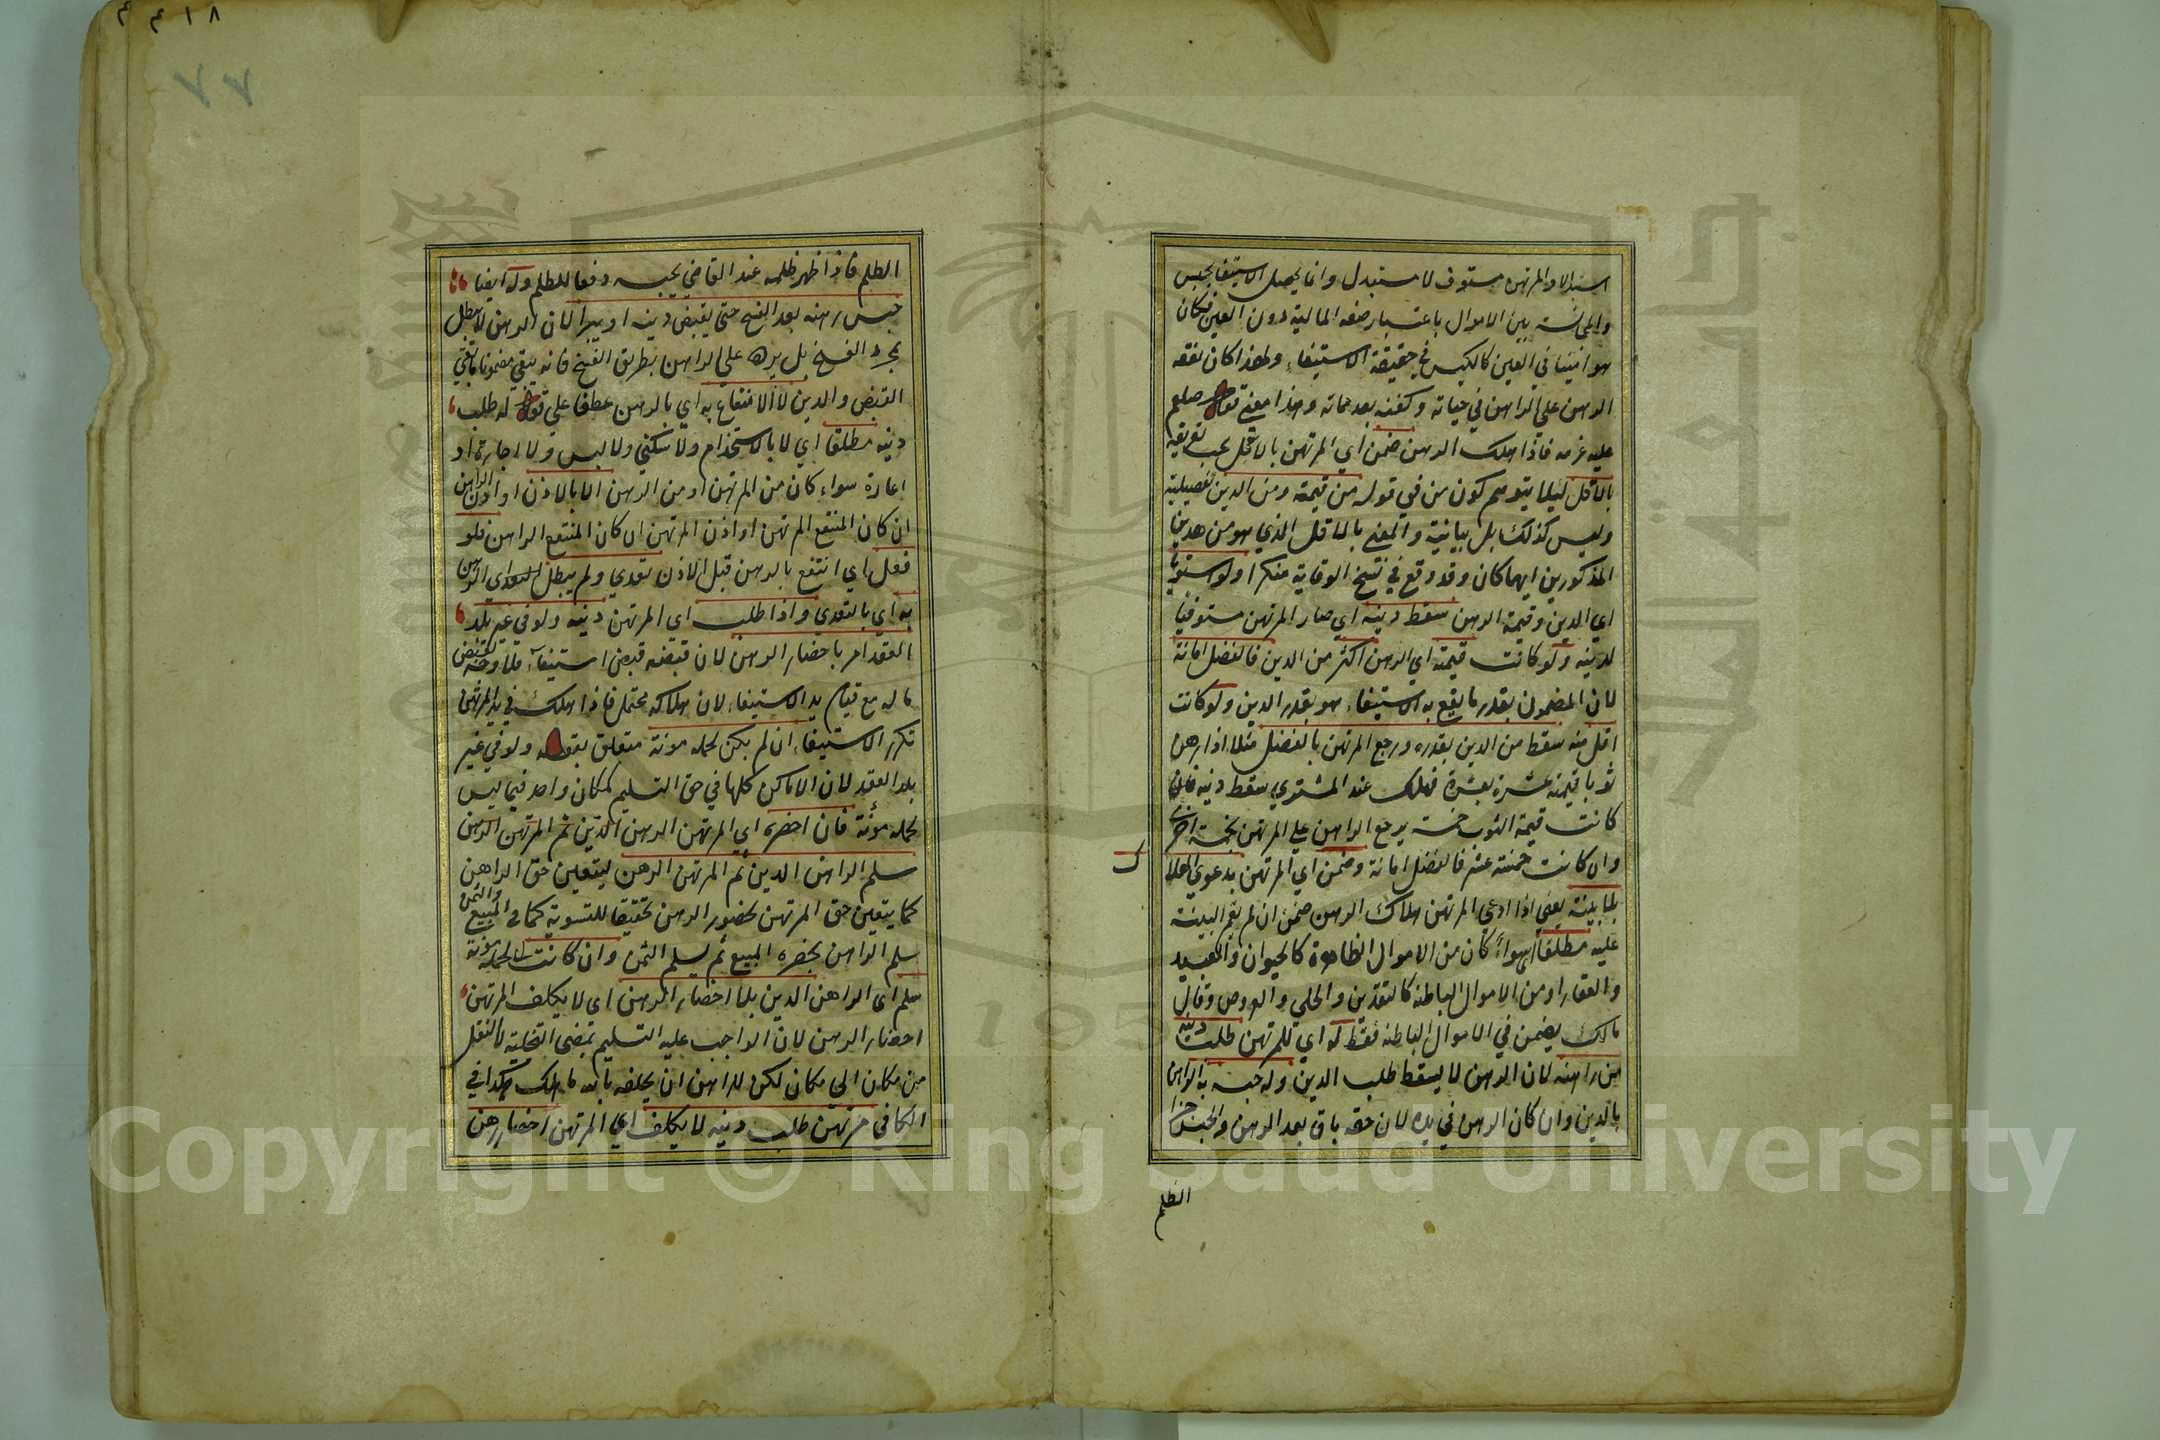 استبدالا والمرتهن مستوف لا مستبدل وانما يحصل الاستيفا بحبس
والمجانسة بين الاموال باعتبار صفة المالية دون العين فكان
هو امينا في العين كالكيس في حقيقة الاستيفاء ولهذا كان نفقة
الرهن على الراهن في حياته وكفنه بعد مماته وهذا معنى قوله صلعم
عليه غرمه فاذا هلك الرهن ضمن اي المرتهن بالاقل
بالاقل ليلا يتوهم كون من في قوله من قيمته ومن الدين تفضيلية
وليس كذلك بل بيانية والمعنى بالاقل الذي هو من هذين
المذكورين ايهما كان وقد وقع في نسخ الوقاية منكرا ولو استويا
اي الدين وقيمة الرهن سقط دينه اي صار المرتهن مستوفيا
لدينه ولو كانت قيمته اي الرهن اكثر من الدين فالفضل امانة
لان المضمون بقدر ما يقع به الاستيفاء هو بقدر الدين ولو كانت
اقل منه سقط من الدين بقدره ورجع المرتهن بالفضل مثلا اذا رهن
ثوبا قيمته عشرة بعشرة فهلك عند المشتري سقط دينه فان
كانت قيمة الثوب خمسة يرجع الراهن على المرتهن بخمسة اخرى
وان كانت خمسة عشر فالفضل امانة وضمن اي المرتهن بدعوى الهلاك
بلا بينة يعني اذا ادعى المرتهن هلاك الرهن ضمن ان لم يقم البينة
عليه مطلقا سواء كان من الاموال الظاهرة كالحيوان والعبيد
والعقار او من الاموال الباطنة كالنقدين والحلي والعروض وقال
مالك يضمن في الاموال الباطنة فقط له اي للمرتهن طلب دينه
من راهنه لان الرهن لا يسقط طلب الدين وله حبسه به اي الراهن
بالدين وان كان الرهن في يده لان حقه باق بعد الرهن والحبس جزاء
الظلم
٧٧
الظلم فاذا ظهر ظلمه عند القاضي يحبسه دفعا للظلم وله ايضا
حبس رهنه بعد الفسخ حتى يقبض دينه او يبرأ لان الرهن لا يبطل
بمجرد الفسخ بل يرده على الراهن بطريق الفسخ فانه يبقى مضمونا ما بقي
القبض والدين لا الانتفاع به اي بالرهن عطف على قوله له طلب
دينه مطلقا اي لا باستخدام ولا سكنى ولا لبس ولا اجارة او
اعارة سواء كان من المرتهن او من الراهن الا بالاذن او اذن الراهن
ان كان المنتفع المرتهن او اذن المرتهن ان كان المنتفع الراهن فلو
فعل اي انتفع بالرهن قبل الاذن تعدي ولم يبطل الرهن
به اي بالتعدي واذا طلب اي المرتهن دينه ولو في غير بلد
العقد امر باحضار الرهن لان قبضه قبض استيفاء فلا وجه لقبض
ماله مع قيام يد الاستيفاء لان هلاكه محتمل فاذا هلك في يد المرتهن
تكرر الاستيفاء ان لم يكن لحمله مونة متعلق بقوله ولو في غير
بلد العقد لان الاماكن كلها في حق التسليم كمكان واحد فيما ليس
لحمله مؤنة فان احضره اي المرتهن الرهن الدين ثم المرتهن الرهن
سلم الراهن الدين ثم المرتهن الرهن ليتعين حق الراهن
كما يتعين حق المرتهن بحضور الرهن تحقيقا للتسوية كما في المبيع والثمن
سلم الراهن بحضره المبيع ثم يسلم الثمن وان كانت لحمله مؤنة
سلم اي الراهن الدين بلا احضار الرهن اي لا يكلف المرتهن
احضار الرهن لان الواجب عليه التسليم بمعنى التخلية لا النقل
من مكان الى مكان لكن للراهن ان يحلفه بالله ما هلك كذا في
الكافي مرتهن طلب دينه لا يكلف اي المرتهن احضار رهن
Copyright © King Saud University